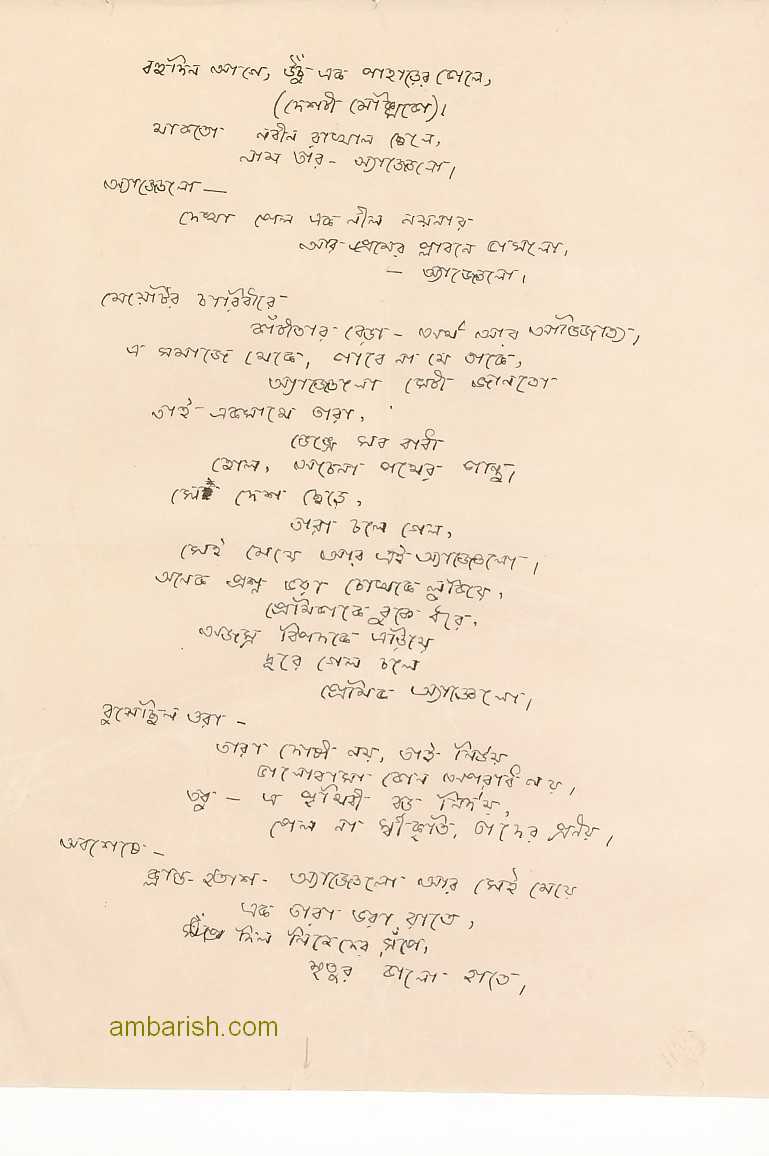 বহুদিন আগে, উঁচু এক পাহাড়ের কোলে,
(দেশটা মেক্সিকো)।
থাকতো নবীন রাখাল ছেলে,
নাম তার - অ্যাঞ্জেলো।
অ্যাঞ্জেলো —
দেখা পেল এক নীল নয়নার
আর প্রেমের প্লাবনে ভাসলো,
— অ্যাঞ্জেলো।
মেয়েটির চারিধারে -
কাঁটাতার বেড়া - অর্থ আর আভিজাত্য,
এ সমাজে থেকে, পাবে না সে তাকে,
অ্যাঞ্জেলো সেটা জানতো
তাই একসাথে তারা,
ভেঙ্গে সব বাধা
হোল, অচেনা পথের পান্থ।
সেই দেশ ছেড়ে,
তারা চলে গেল,
সেই মেয়ে আর এই অ্যাঞ্জেলো।
অনেক প্রশ্ন ভরা চোখকে লুকিয়ে,
প্রেমিকাকে বুকে ধরে,
অজস্র বিপদকে এড়িয়ে
দূরে গেল চলে
প্রেমিক অ্যাঞ্জেলো।
বুঝেছিল ওরা -
তারা দোষী নয়, তাই নির্ভয়
ভালোবাসা কোন অপরাধ নয়।
তবু - এ পৃথিবী বড় নির্দয়,
পেল না স্বীকৃতি, তাদের প্রনয়।
অবশেষে -
ক্লান্ত হতাশ - অ্যাঞ্জেলো আর সেই মেয়ে
এক তারা ভরা রাতে,
দিল নিজেদের সঁপে,
মৃত্যুর কালো হাতে,
ambarish.com